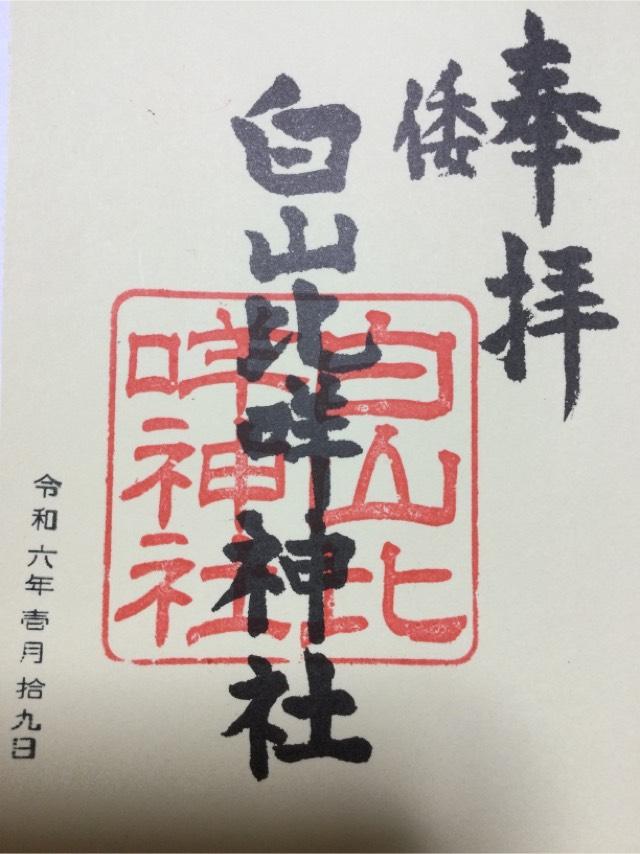 奉拝
倭
白山比咩神社
白山比
咩神社
令和六年壱月拾九日